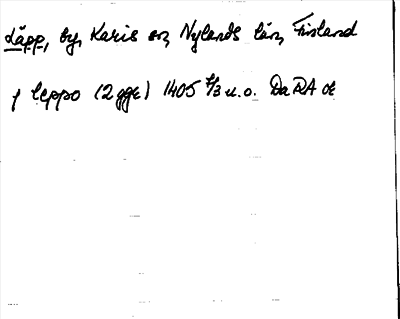 Läpp, by, Karis sn, Nylands län, Finland
j leppo (2 ggr) 1405 4/3 u.o. Da RA or